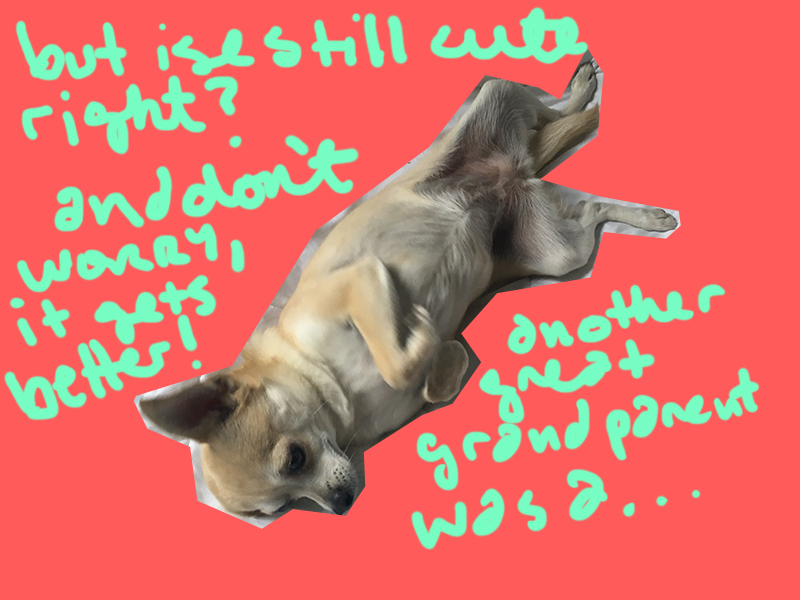 but ise still cute
right?
and don't
worry,
it gets
better!
another
great
grand parent
was a...